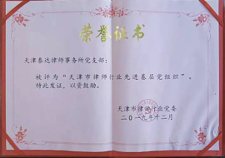 荣誉证书
天津泰达律师事务所党支部：
被评为“天津市律师行业先进基层党组织”，
特此发证，以资鼓励。
天津市律师行业党委
二〇一九年十二月